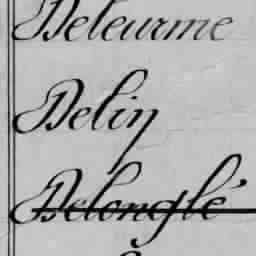 Deleurme
Delin
Delonglé